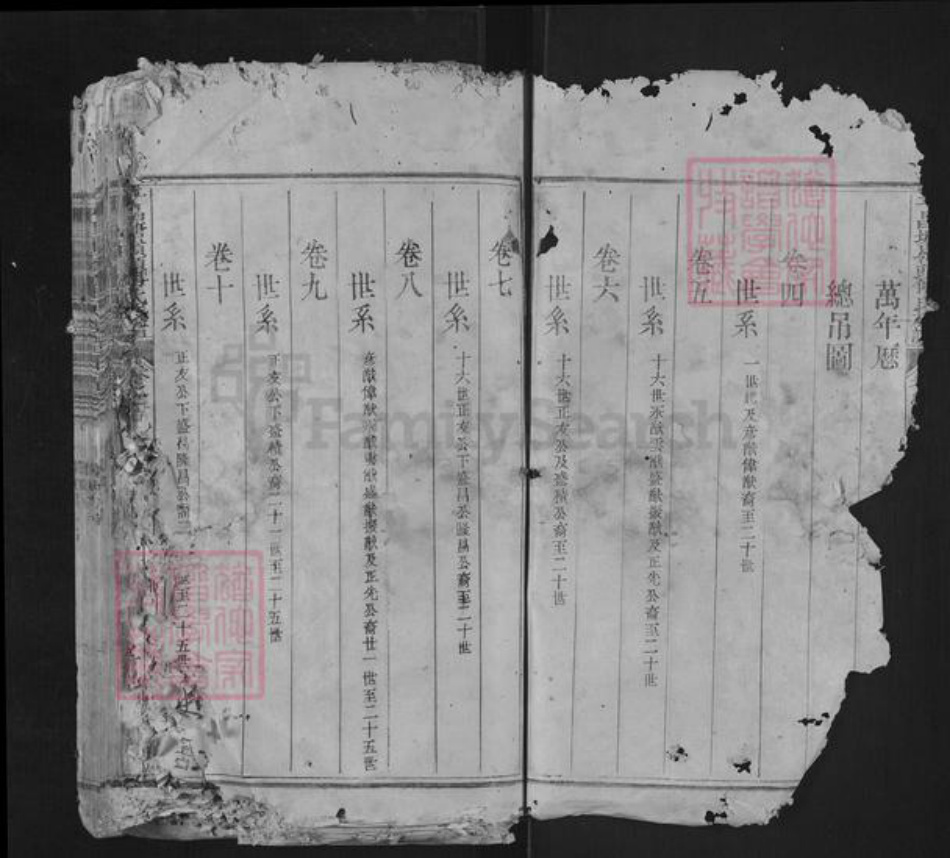 萬年厯
總吊圖
卷四
世系 一世起及彥猷偉猷裔至二十世
卷五
世系 十六世永猷雲猷盛猷猷及正先公裔至二十世
卷六
世系 十六世正友公及盛積公裔至二十世
卷七
世系 十六世正友公下盛昌公隆昌公裔至二十世
卷八
世系 彥猷偉猷永猷猷盛猷猷及正先公裔廿一世至二十五世
卷九
世系 正友公下盛積公裔二十一世至二十五世
卷十
世系 正友公下盛昌隆昌公裔二世至二十五世
FamilySearch